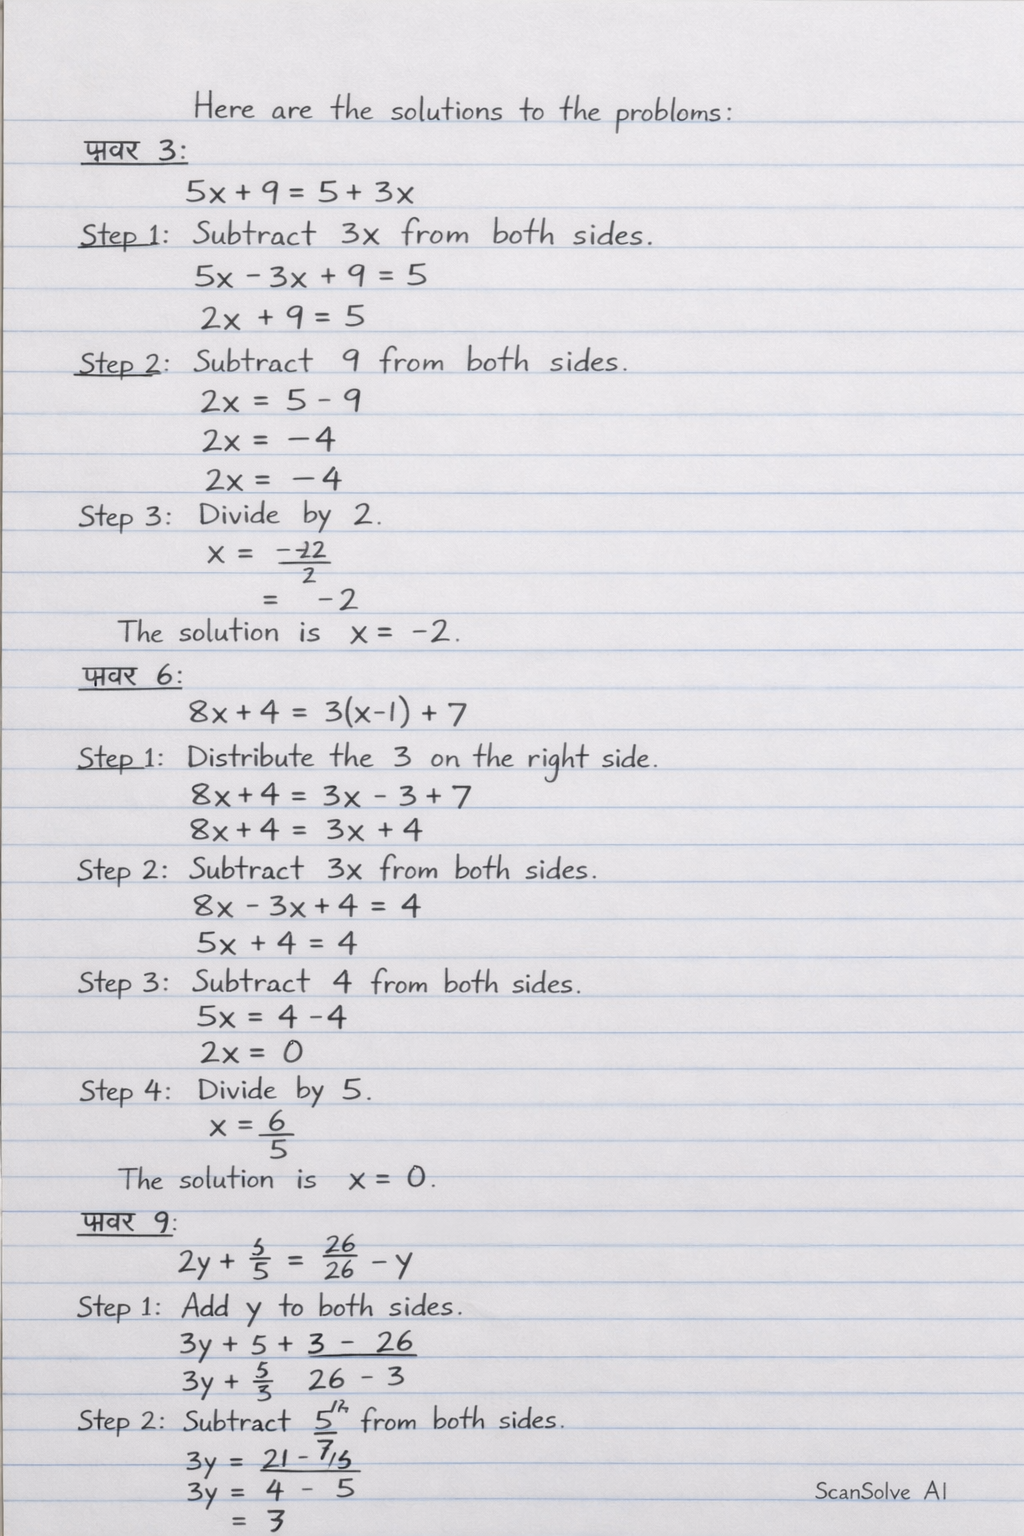 Here are the solutions to the probloms:
3:
5x + 9 = 5 + 3x
Step 1: Subtract 3x from both sides.
5x - 3x + 9 = 5
2x + 9 = 5
Step 2: Subtract 9 from both sides.
2x = 5 - 9
2x = -4
2x = -4
Step 3: Divide by 2.
x =
2
= -2
The solution is x = -2.
6:
8x + 4 = 3(x-1) + 7
Step 1: Distribute the 3 on the right side.
8x + 4 = 3x - 3 + 7
8x + 4 = 3x + 4
Step 2: Subtract 3x from both sides.
8x - 3x + 4 = 4
5x + 4 = 4
Step 3: Subtract 4 from both sides.
5x = 4 - 4
2x = 0
Step 4: Divide by 5.
x = 6/5
The solution is x = 0.
9:
2y + 5/5 = 26/26 - y
Step 1: Add y to both sides.
3y + 5 + 3 - 26
3y + 5/3 26 - 3
Step 2: Subtract 5 from both sides.
3y = 21 -
3y = 4 - 5
= 3
ScanSolve AI